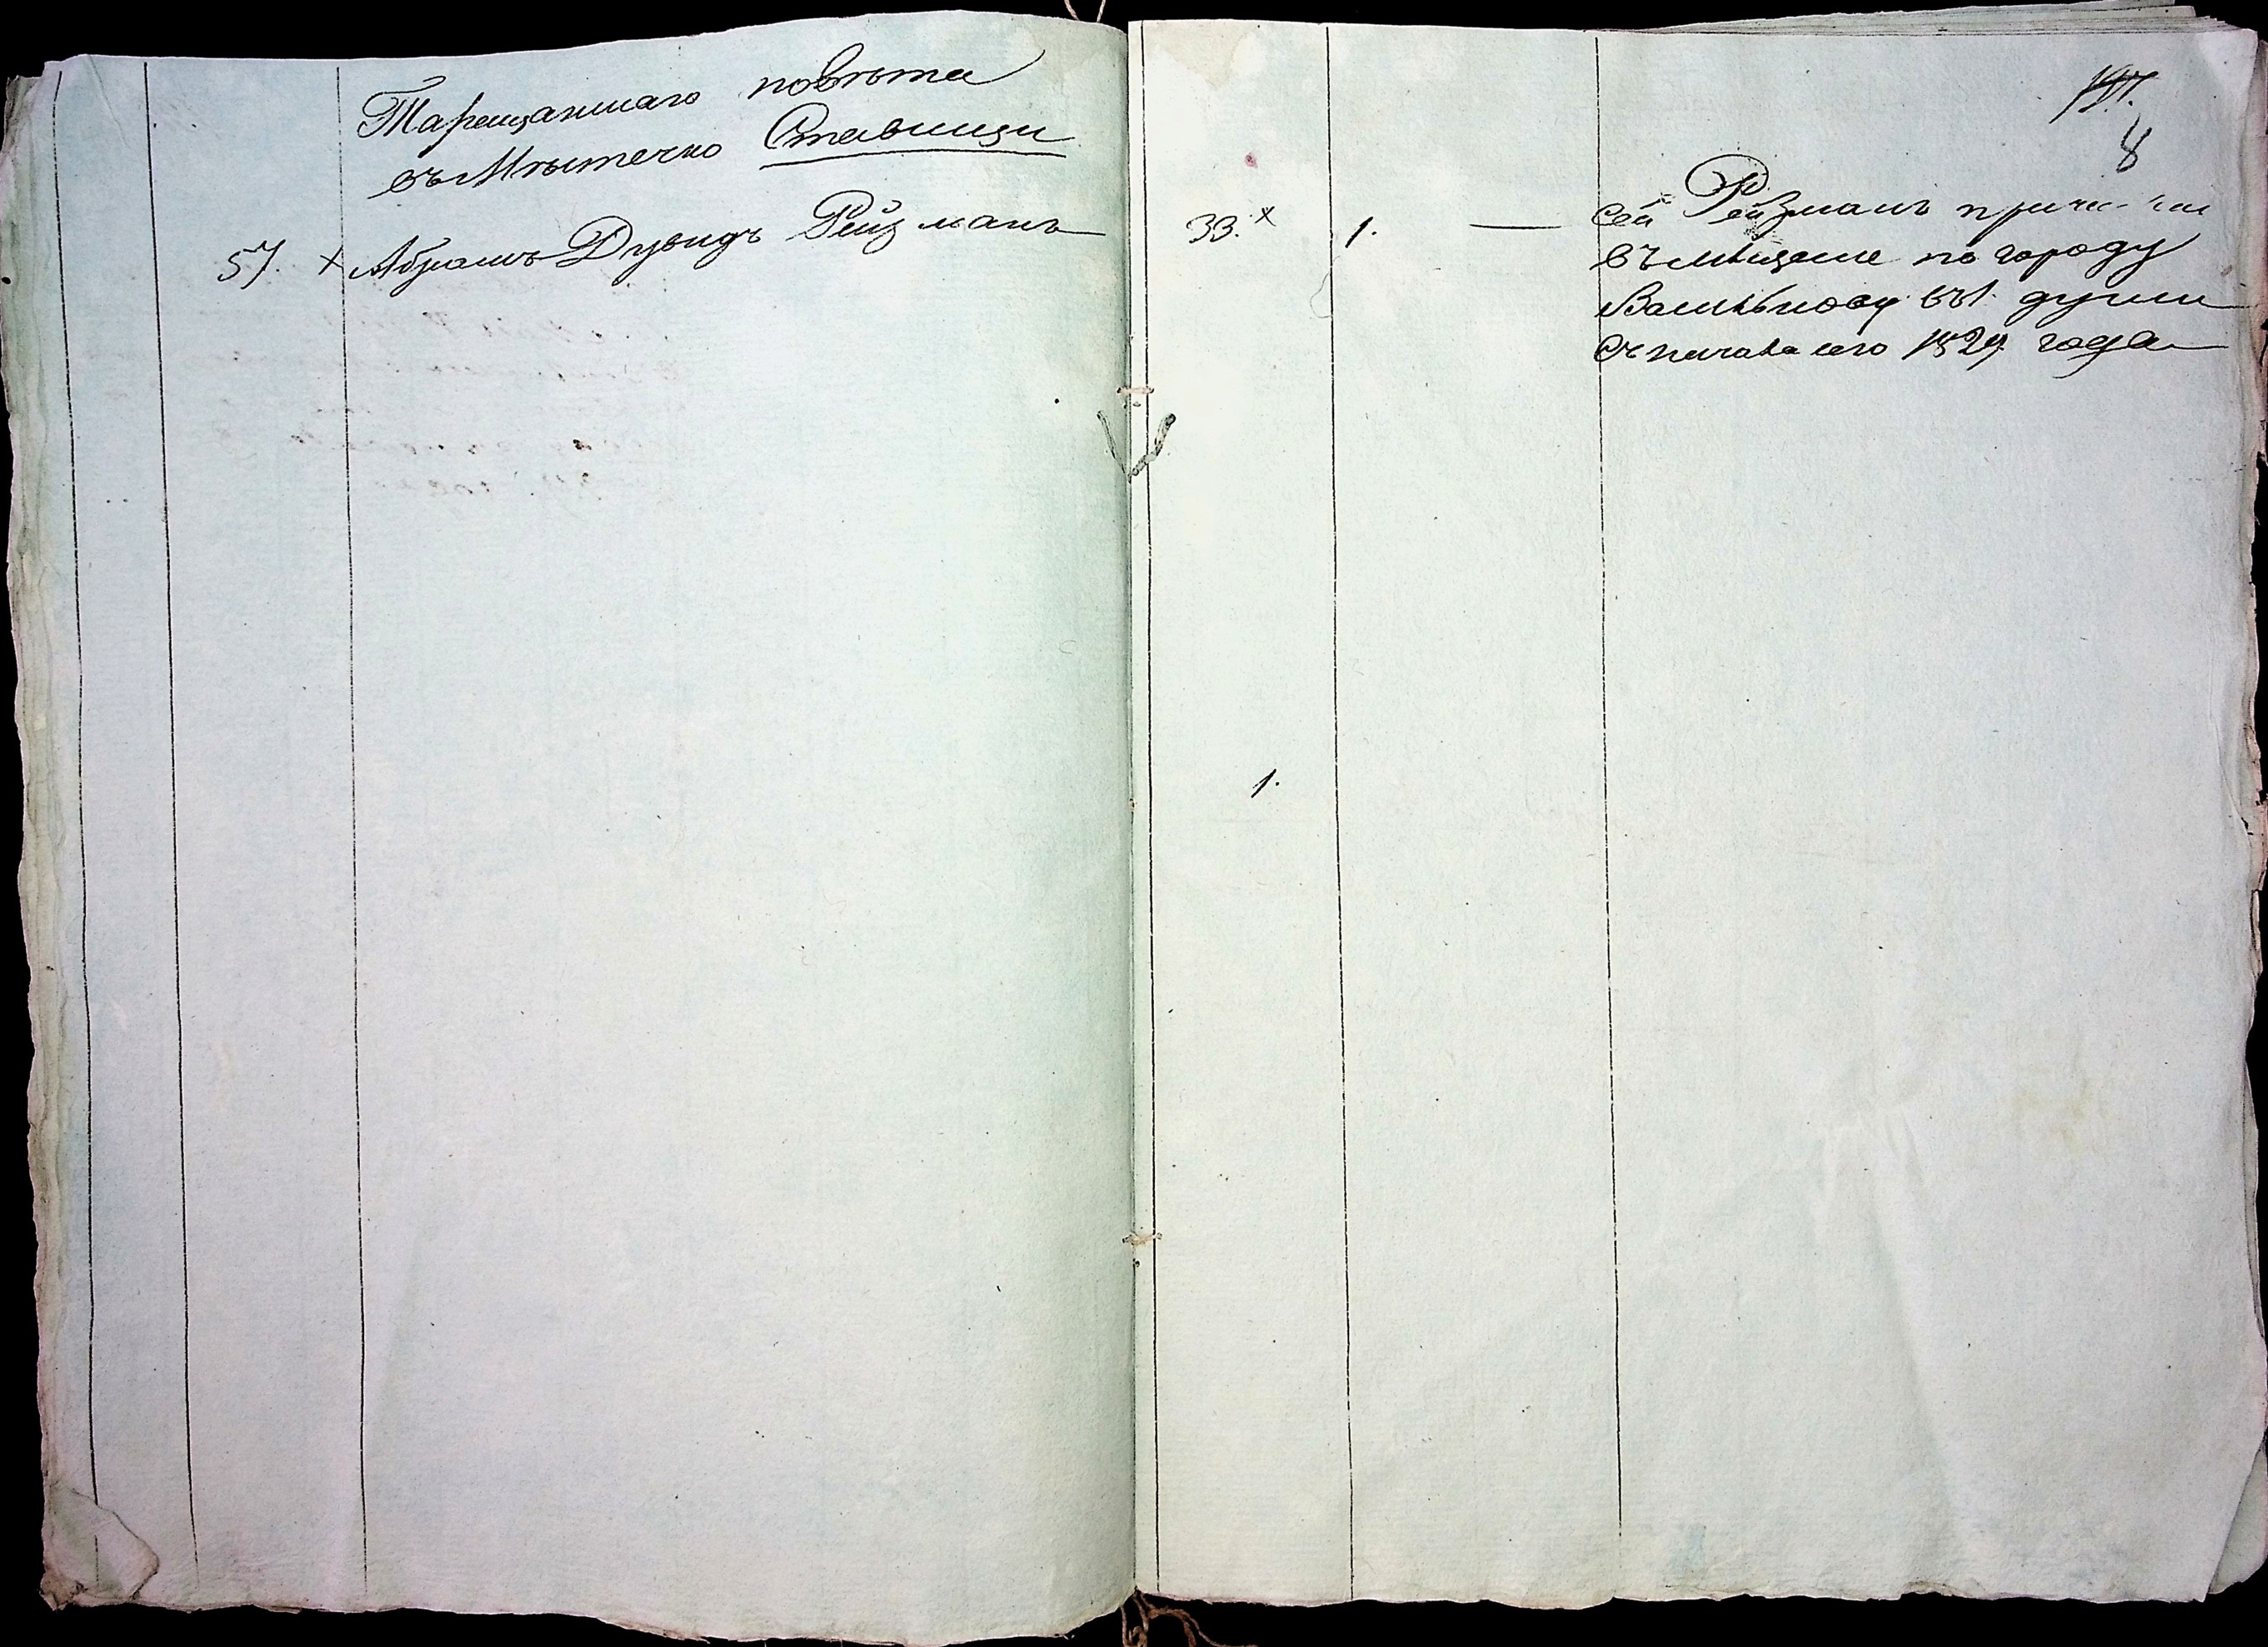 Таращанскаго повѣта
въ Мѣстечко Ставищи
57. × Абрамъ Дувидъ Рейзманъ
197.
8
33.× 1. —
сей Рейзманъ
въ мѣщане по городу
Василькову въ 1. души
съ начала сего 1829 года
1.